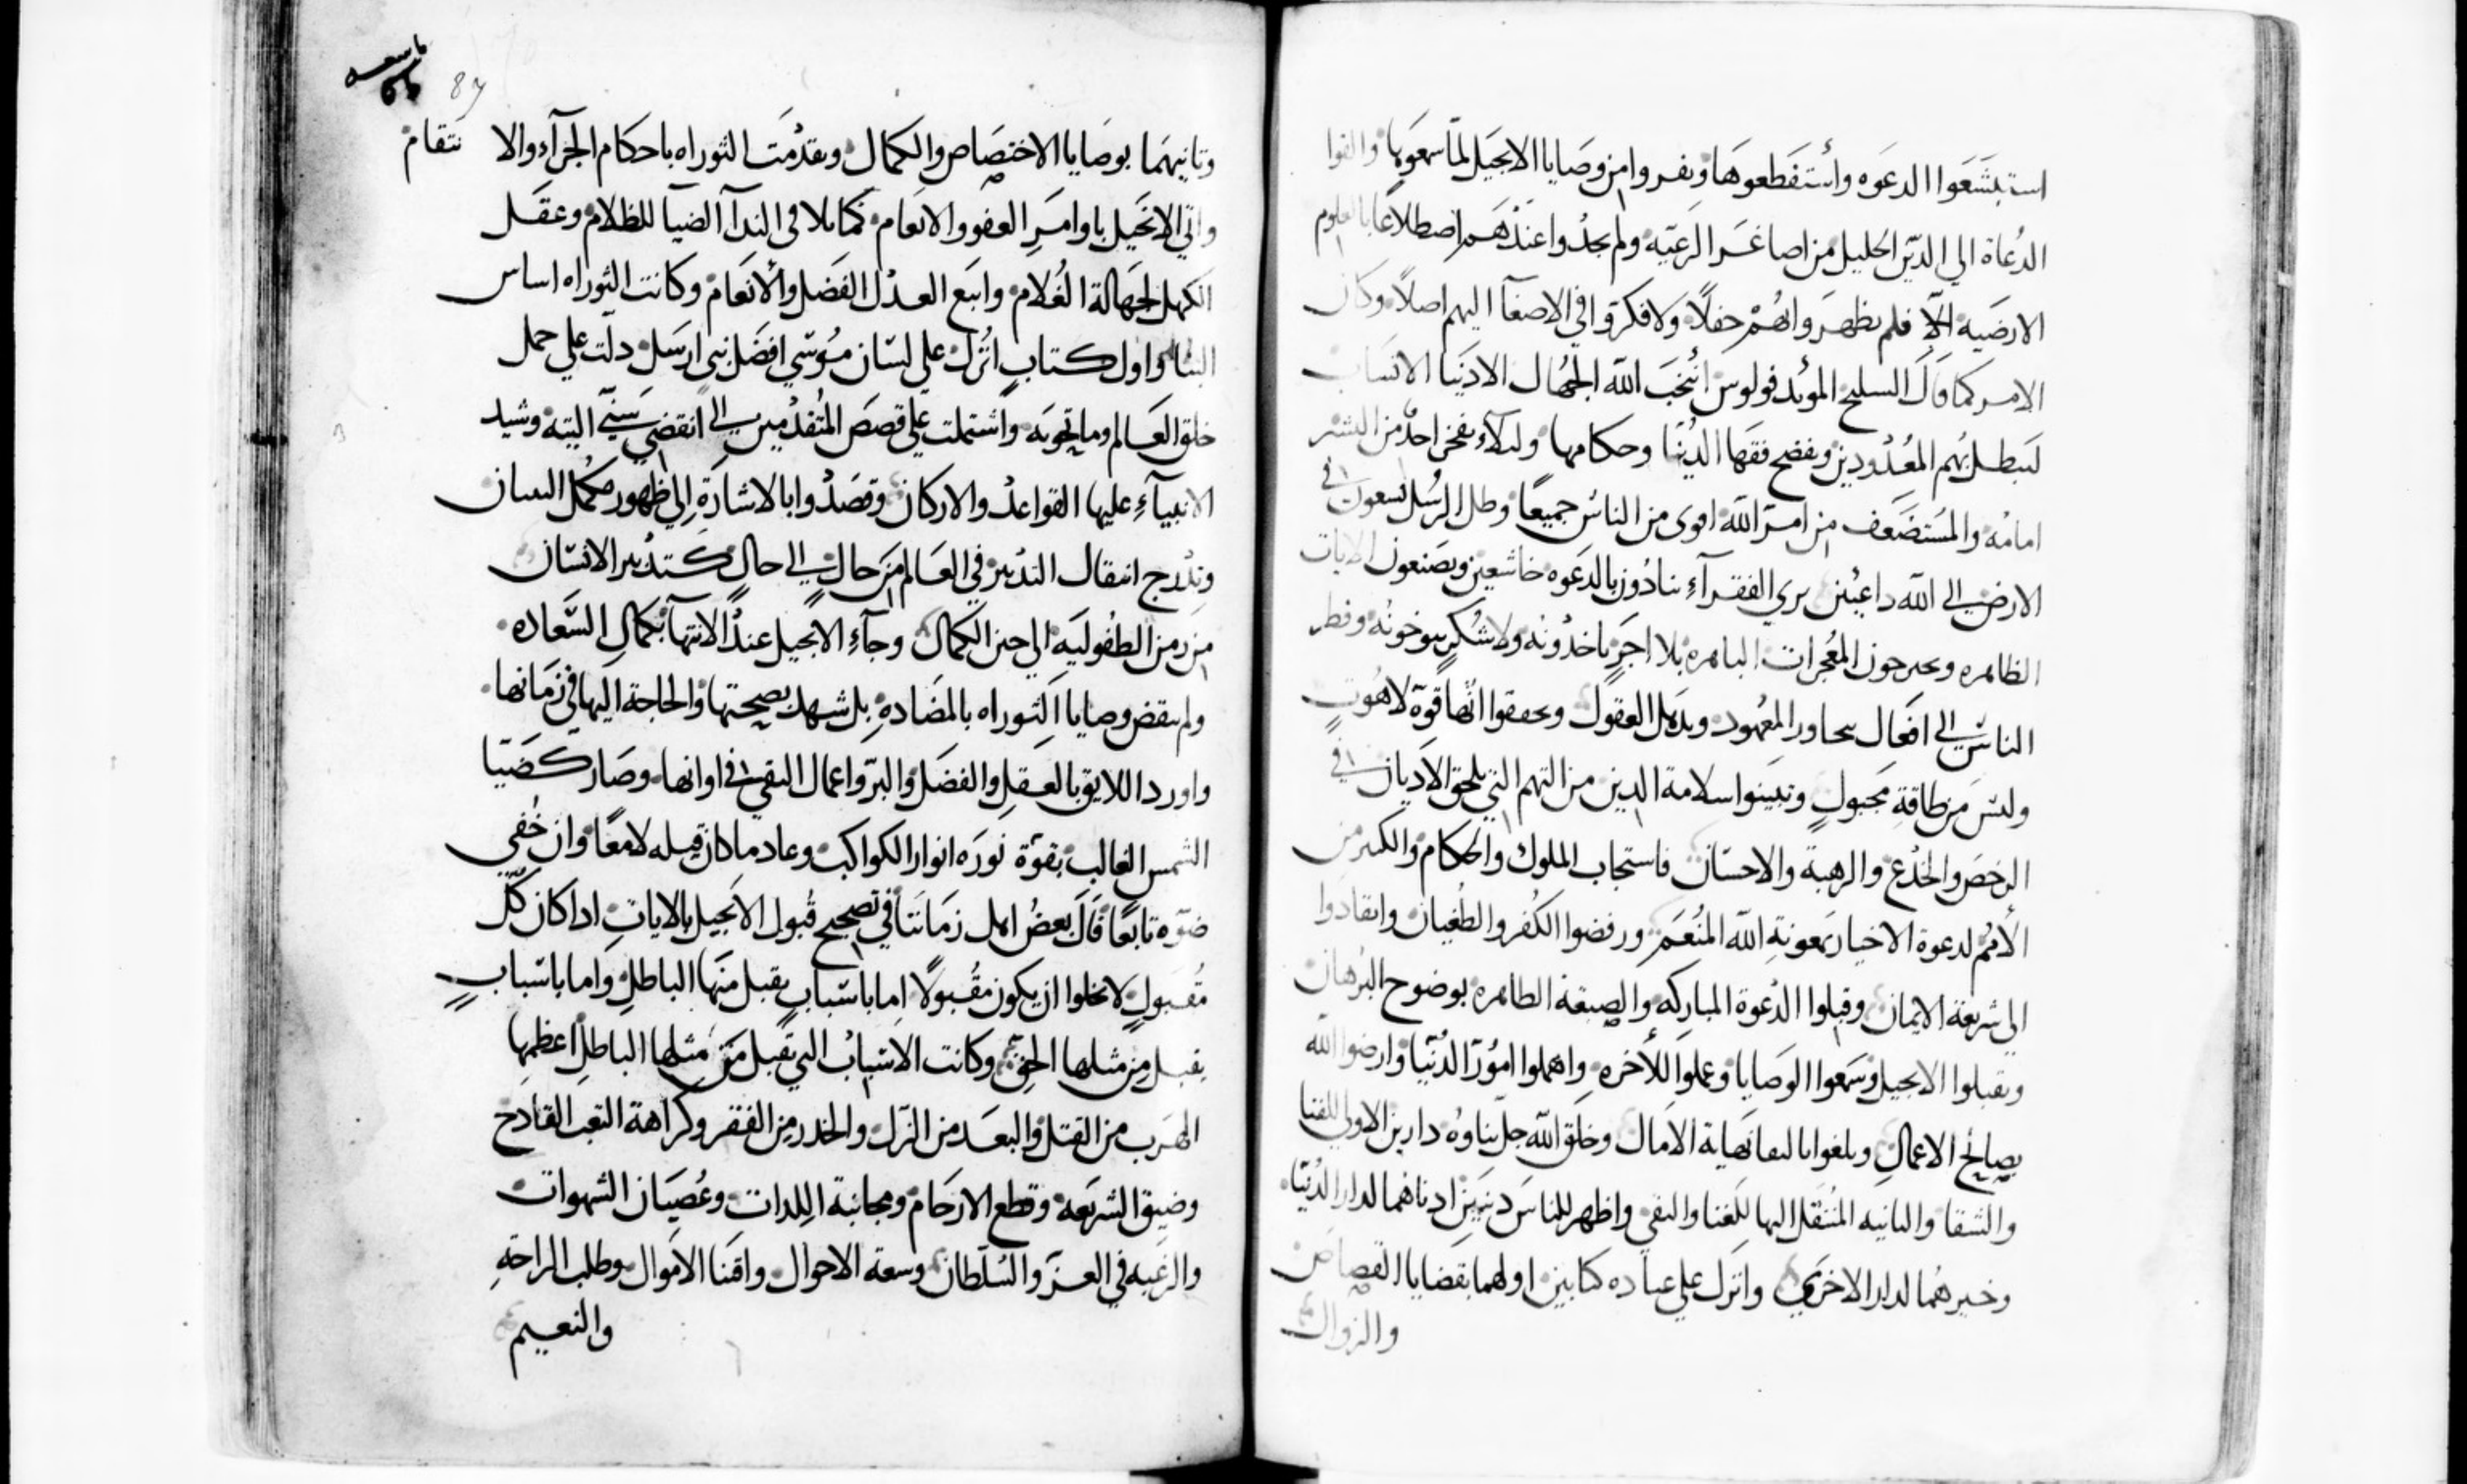 استبشعوا الدعوه وأستفظعوها ونفروا من وصايا الانجيل لما سمعوها والفوا
الدعاة الي الدين الجليل من اصاغر الرعيه ولم يجدوا عندهم اضطلاعًا بالعلوم
الارضيه الا فلم يظهروا لهم حفلًا ولا فكروا في الاصغآ اليهم اصلًا وكان
الامر كما قال السليح المويد فولوس انتخب الله الجهال الادنيا الانساب
ليبطل بهم المعدودين ويفضح فقها الدنيا وحكامها وليلا يفخر احدٌ من البشر
امامه والمستضعف من امر الله اقوى من الناس جميعًا وظل الرسل يسعون في
الارض الي الله داعيين بزي الفقرآء ينادون بالدعوه خاشعين ويصنعون الايات
الظاهره ويجترحون المعجزات الباهره بلا اجرٍ ياخدونه ولا شكرٍ يتوخونه ونظر
الناس الي افعال تجاوز المعهود وتذهل العقول وتحققوا انها قوة لاهوتٍ
وليس من طاقة مجبولٍ وتبينوا سلامة الدين من التهم التي تلحق الاديان في
الرخص والخدع والرهبة والاحسان فاستجاب الملوك والحكام والكثير من
الأمم لدعوة الاخيار بمعونة الله المنعم ورفضوا الكفر والطغيان وانقادوا
الي شريعة الايمان وقبلوا الدعوة المباركه والصبغة الطاهره بوضوح البرهان
وتقبلوا الانجيل وسمعوا الوصايا وعملوا للآخره واهملوا امور الدنيا وارضوا الله
بصالح الاعمال وبلغوا بالتقا نهاية الامال وخلق الله جل ثناوه دارين الاولي للفنا
والشقا والثانيه المنتقل اليها للغنا والبقي واظهر للناس دينين ادناهما لدار الدنيا
وخيرهما لدار الاخرى وانزل علي عباده كتابين اولهما بقضايا القصاص
والزوال
87
وثانيهما بوصايا الاختصاص والكمال وتقدمت التوراه باحكام الجزآء والانتقام
واتي الانجيل باوامر العفو والانعام كما تلافى الندآ الضيآ للظلام وعقل
الكهل لجهالة الغلام واتبع العدل الفضل والأنعام وكانت التوراه اساس
البناء واول كتاب انزل علي لسان موسي افضل نبي ارسل دلت علي جمل
خلق العالم وما تحويه واشتملت علي قصص المتقدمين الي انقضي سني التيه وشيد
الانبيآء عليها القواعد والاركان وقصدوا بالاشارة إلي ظهور مكمل البيان
وتدرج انتقال التدبير في العالم من حال الي حالٍ كتدبير الانسان
من زمن الطفوليه الي حين الكمال وجآء الانجيل عند الانتهآ بكمال السعاده
ولم ينقض وصايا التوراه بالمضاده بل شهد بصحتها والحاجة اليها في زمانها
واورد اللايق بالعقل والفضل والبر واعمال التقي في اوانها وصار كضيا
الشمس الغالب بقوة نوره انوار الكواكب وعاد ما كان قبله لامعًا وان خُفي
ضوه تابعًا قال بعض اهل زماننا في تصحيح قبول الانجيل بالايات ادا كان كل
مقبولٍ لا يخلوا ان يكون مقبولًا اما باسبابٍ يقبل منها الباطل واما باسبابٍ
يقبل من مثلها الحق وكانت الاسباب التي تقبل من مثلها الباطل اعظمها
الهرب من القتل والبعد من الزل والحدر من الفقر وكراهة التعب القادح
وضيق الشريعه وقطع الارحام ومجانبة اللدات وعصيان الشهوات
والرغبه في العز والسلطان وسعة الاحوال واقنا الاموال وطلب الراحةِ
والنعيم